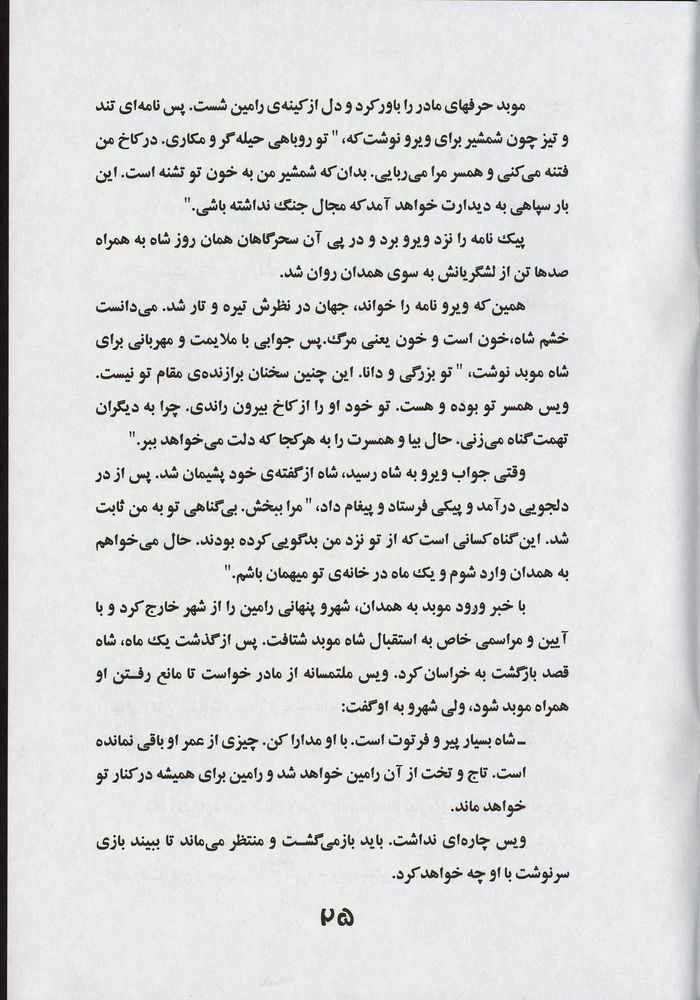 موبد حرفهای مادر را باور کرد و دل از کینه‌ی رامین شست. پس نامه‌ای تند
و تیز چون شمشیر برای ویرو نوشت که، " تو روباهی حیله‌گر و مکاری. در کاخ من
فتنه می‌کنی و همسر مرا می‌ربایی. بدان که شمشیر من به خون تو تشنه است. این
بار سپاهی به دیدارت خواهد آمد که مجال جنگ نداشته باشی."
پیک نامه را نزد ویرو برد و در پی آن سحرگاهان همان روز شاه به همراه
صدها تن از لشگریانش به سوی همدان روان شد.
همین که ویرو نامه را خواند، جهان در نظرش تیره و تار شد. می‌دانست
خشم شاه، خون است و خون یعنی مرگ. پس جوابی با ملایمت و مهربانی برای
شاه موبد نوشت، " تو بزرگی و دانا. این چنین سخنان برازنده‌ی مقام تو نیست.
ویس همسر تو بوده و هست. تو خود او را از کاخ بیرون راندی. چرا به دیگران
تهمت گناه می‌زنی. حال بیا و همسرت را به هر کجا که دلت می‌خواهد ببر."
وقتی جواب ویرو به شاه رسید، شاه از گفته‌ی خود پشیمان شد. پس از در
دلجویی درآمد و پیکی فرستاد و پیغام داد، " مرا ببخش. بی‌گناهی تو به من ثابت
شد. این گناه کسانی است که از تو نزد من بدگویی کرده بودند. حال می‌خواهم
به همدان وارد شوم و یک ماه در خانه‌ی تو میهمان باشم."
با خبر ورود موبد به همدان، شهرو پنهانی رامین را از شهر خارج کرد و با
آیین و مراسمی خاص به استقبال شاه موبد شتافت. پس از گذشت یک ماه، شاه
قصد بازگشت به خراسان کرد. ویس ملتمسانه از مادر خواست تا مانع رفتن او
همراه موبد شود، ولی شهرو به او گفت:
ـ شاه بسیار پیر و فرتوت است. با او مدارا کن. چیزی از عمر او باقی نمانده
است. تاج و تخت از آن رامین خواهد شد و رامین برای همیشه در کنار تو
خواهد ماند.
ویس چاره‌ای نداشت. باید بازمی‌گشت و منتظر می‌ماند تا ببیند بازی
سرنوشت با او چه خواهد کرد.
۲۵